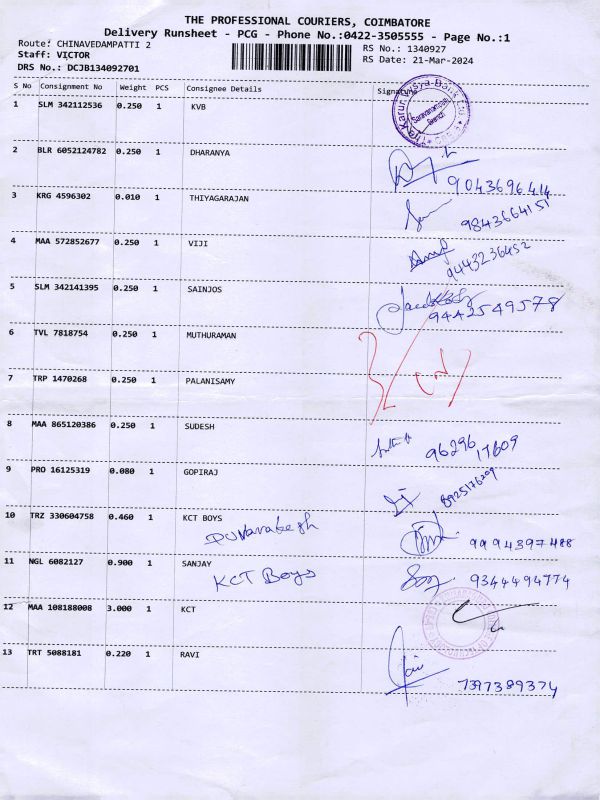 THE PROFESSIONAL COURIERS, COIMBATORE
Delivery Runsheet - PCG - Phone No.:0422-3505555 - Page No.:1
Route: CHINAVEDAMPATTI 2
RS No.: 1340927
Staff: VICTOR
RS Date: 21-Mar-2024
DRS No.: DCJB134092701
S No Consignment No Weight PCS Consignee Details Signature
1 SLM 342112536 0.250 1 KVB
The Karur Vysya Bank Ltd. Branch
2 BLR 6052124782 0.250 1 DHARANYA 9043696414
3 KRG 4596302 0.010 1 THIYAGARAJAN 9843664151
4 MAA 572852677 0.250 1 VIJI 9443236452
5 SLM 342141395 0.250 1 SAINJOS 9442549578
6 TVL 7818754 0.250 1 MUTHURAMAN
7 TRP 1470268 0.250 1 PALANISAMY
8 MAA 865120386 0.250 1 SUDESH 96296 17609
9 PRO 16125319 0.080 1 GOPIRAJ 8925176209
10 TRZ 330604758 0.460 1 KCT BOYS 9994397488
11 NGL 6082127 0.900 1 SANJAY 9344494774
KCT Boys
12 MAA 108188008 3.000 1 KCT
13 TRT 5088181 0.220 1 RAVI 7397389374